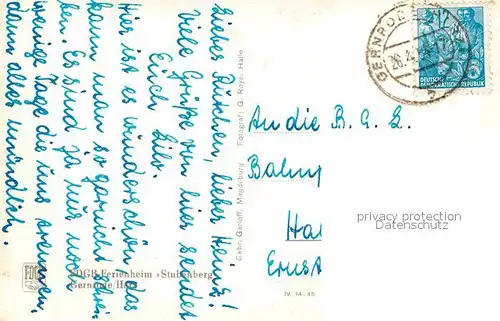 Liebes Putchen, lieber Heinz!
Viele Grüße von hier sendet
Euch Lilo.
Hier ist es wunderschön das
kann man so garnicht schrei-
ben. Es sind ja nur noch
wenige Tage die uns trennen.
Dann alles mündlich.
FDGB-Ferienheim »Stubenberg«
Gernrode/Harz
Gebr. Garloff, Magdeburg Fotograf: G. Roye, Halle
IV-14-45
GERNRODE
DEUTSCHE
DEMOKRATISCHE REPUBLIK
An die B.G.L.
Bahn
Ha
Ernst
privacy protection
Datenschutz